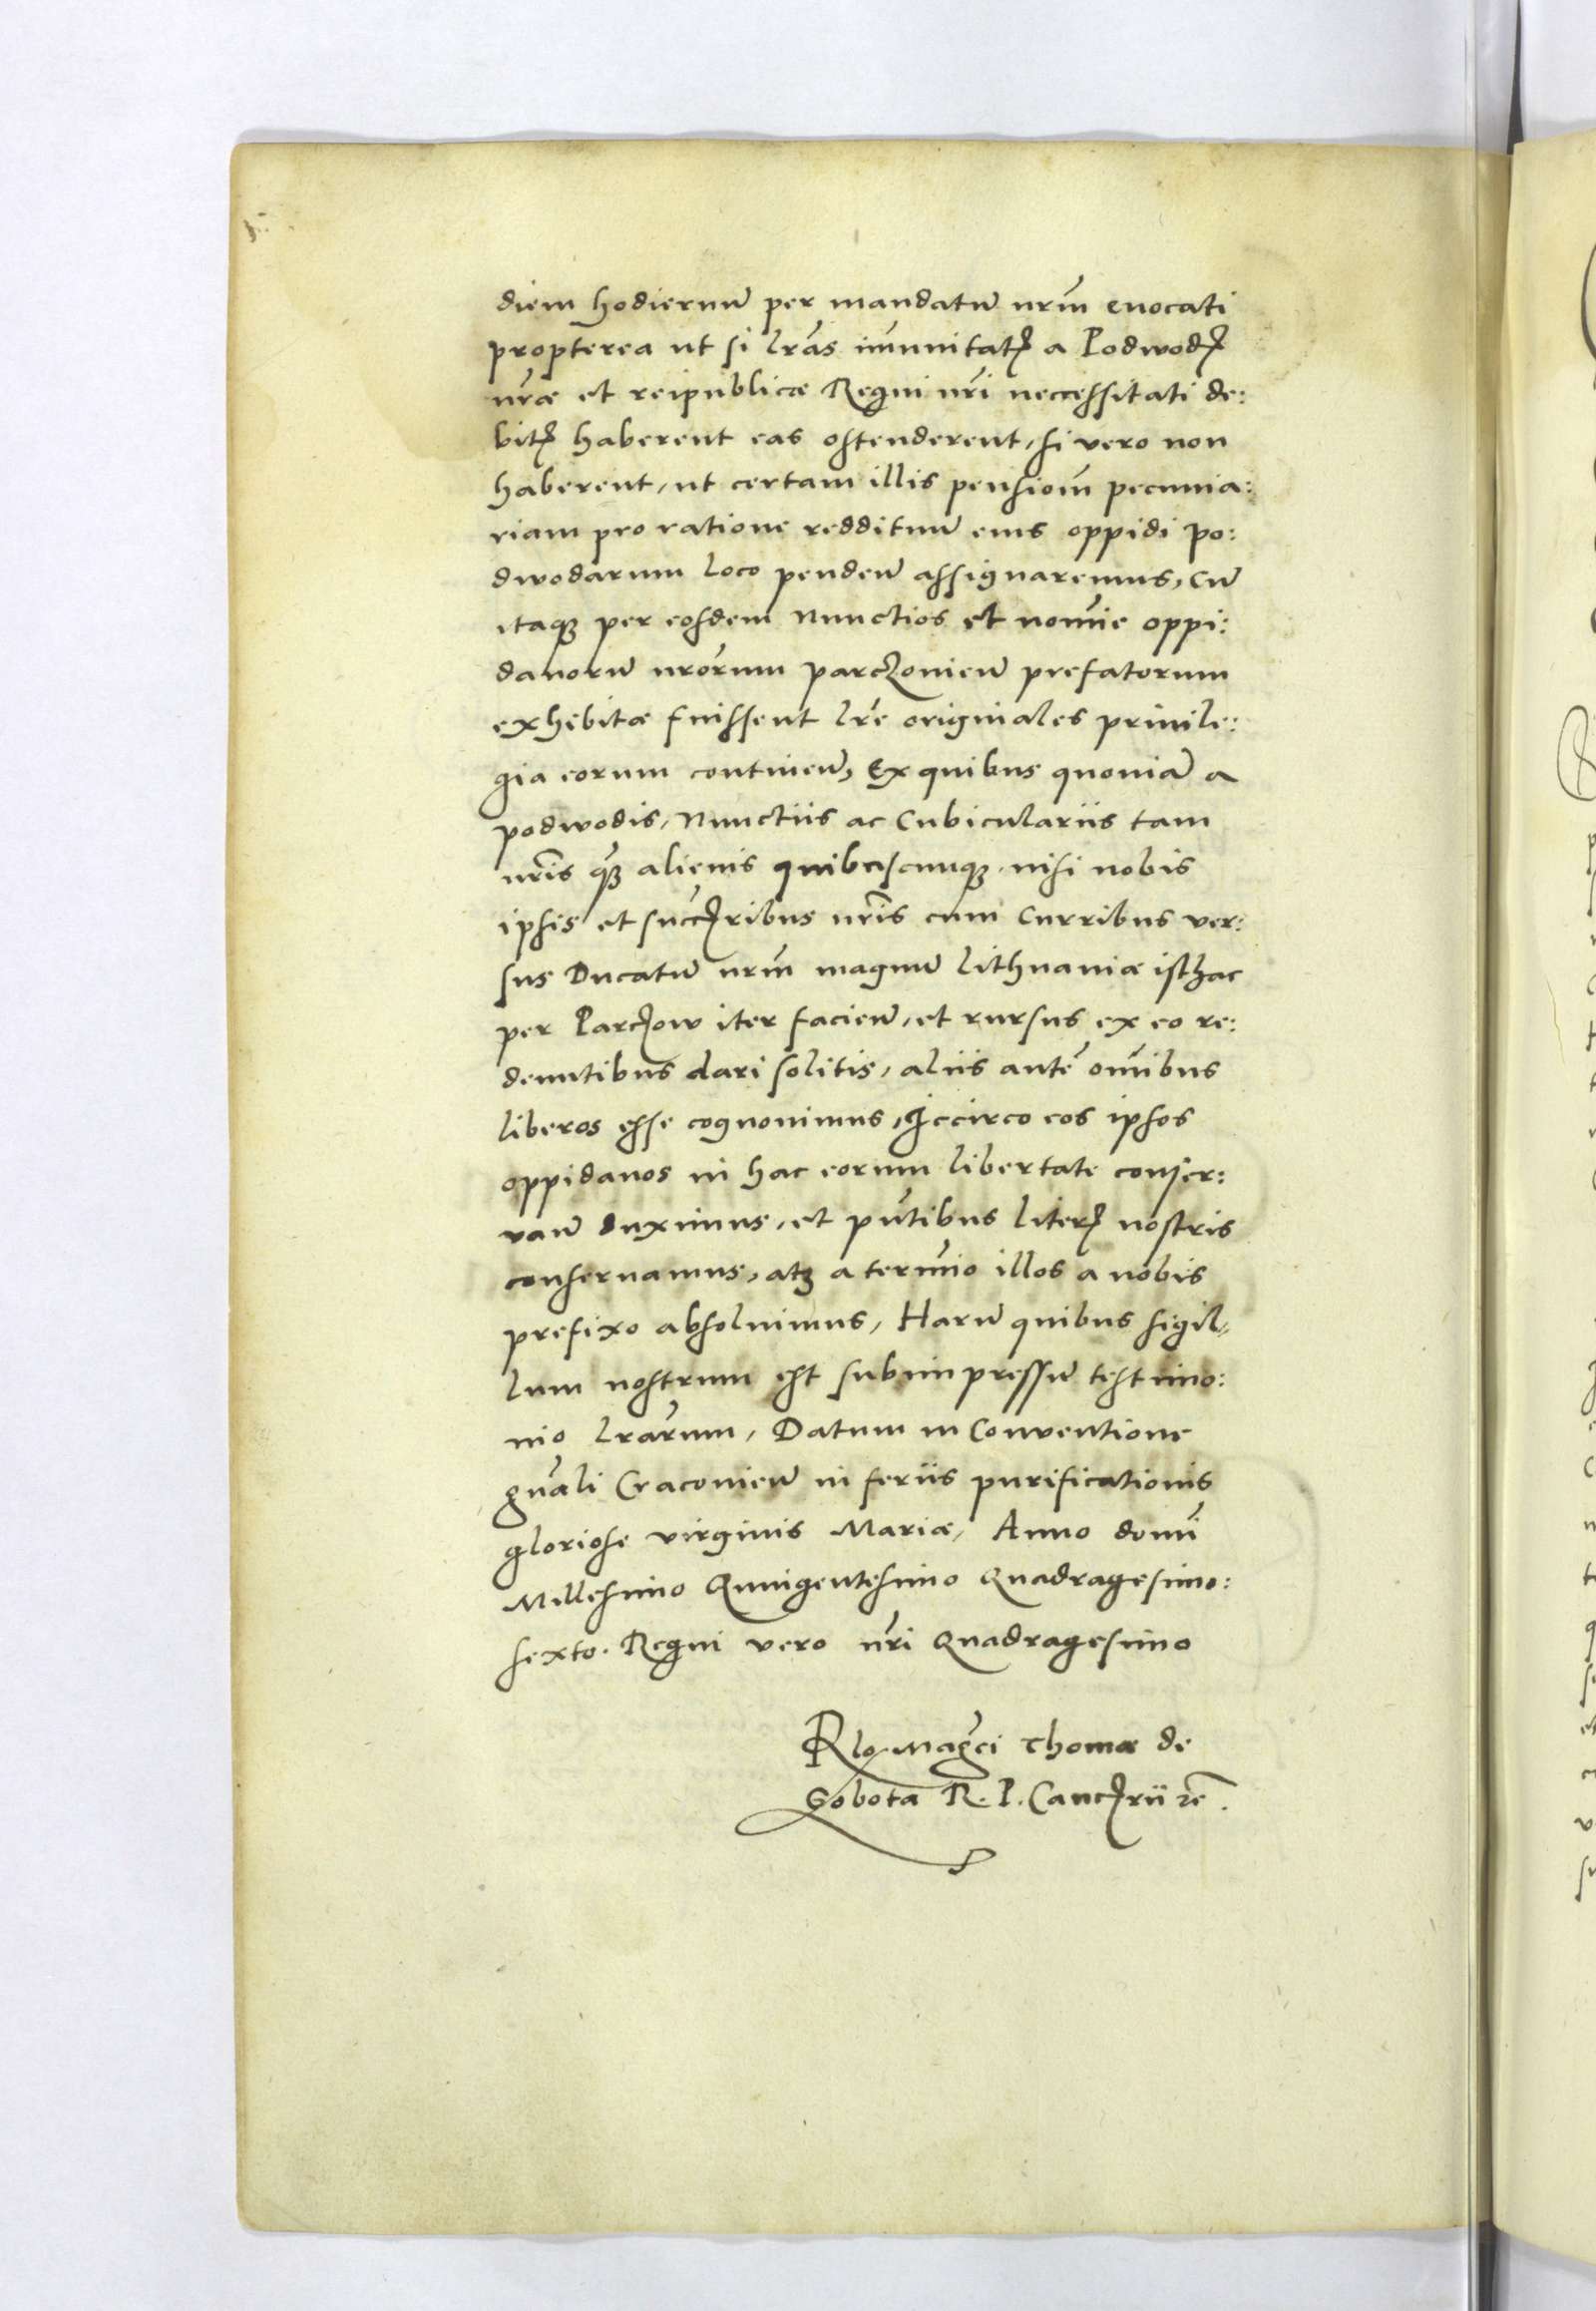 diem hodiernū per mandatū nr̄m euocati
propterea ut si lr̄as im̄unitatꝭ a Podwodꝭ
nr̄æ et reipublicæ Regni nr̄i neccessitati de:
bitꝭ haberent eas ostenderent, si vero non
haberent, ut certam illis pensiom̄ pecunia:
riam pro ratione reddituū eius oppidi po:
dwodarum loco pendeń assignaremus, Cū
itaqȝ per eosdem Nunctios et nom̄ie oppi:
danorū nr̄orum parczonień prefatorum
exhibitæ fuissent lr̄e originales priuile:
gia eorum continéń, Ex quibus quoniā a
podwodis, Nunctiis ac Cubiculariis tam
nr̄is qȝ̄ alienis quibuscunqȝ nisi nobis
ipsis et succꝭribus nr̄is cum Curribus ver:
sus Ducatū nr̄m magnū Lithuaniæ isthac
per Parcꝭow iter facień, et rursus ex eo re:
deuntibus dari solitis, aliis autē om̄ibus
liberos esse cognouimus, Iccirco eos ipsos
oppidanos in hac eorum libertate conser:
vań duximus, et pn̄tibus literꝭ nostris
conseruamus, atqȝ a term̄io illos a nobis
prefixo absoluimus, Harū quibus sigil-
lum nostrum est subimpressū testimo:
nio lr̄arum, Datum in Conuentione
gn̄ali Cracouień in feriis purificationis
gloriose virginis Mariæ, Anno domī
Millesimo Quingentesimo Quadragesimo:
sexto. Regni vero nr̄i Quadragesimo
Rlo Mag̃ci Thomæ de
Sobota R. P. Cancꝭrii rē.